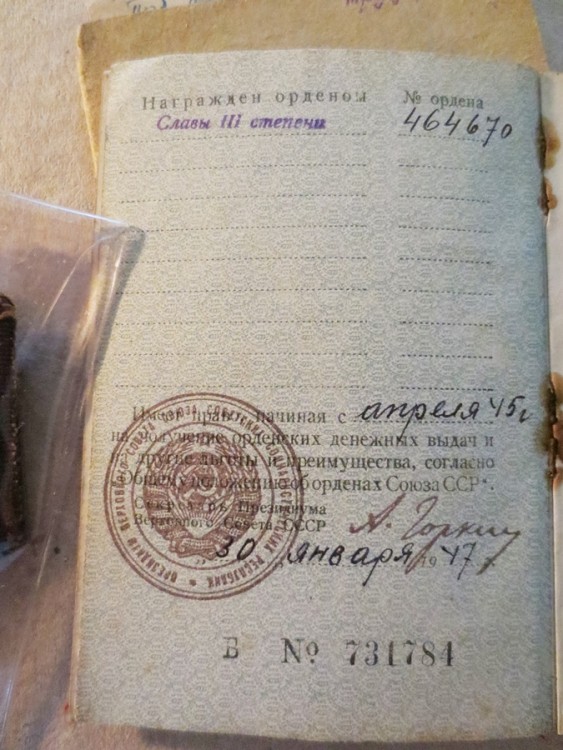 Награжден орденом № ордена
Славы III степени 464670
Имеет право, начиная с апреля 45 г
на получение орденских денежных выдач и
другие льготы и преимущества, согласно
Общему положению об орденах Союза ССР".
Секретарь Президиума
Верховного Совета СССР А. Горкин
"30" января 1947 г.
ПРЕЗИДИУМ ВЕРХОВНОГО СОВЕТА СОЮЗА СОВЕТСКИХ СОЦИАЛИСТИЧЕСКИХ РЕСПУБЛИК
Б № 731784